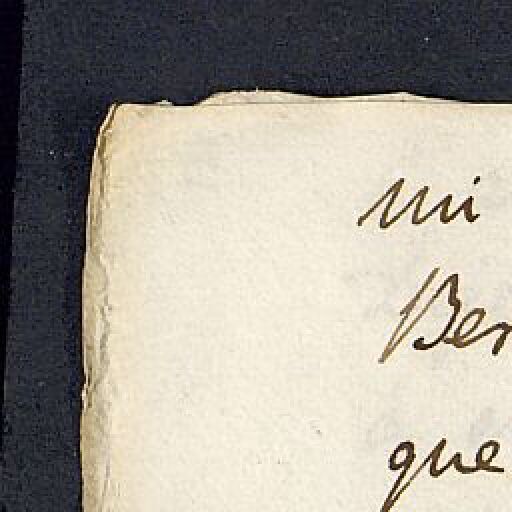 mi
Ber
que